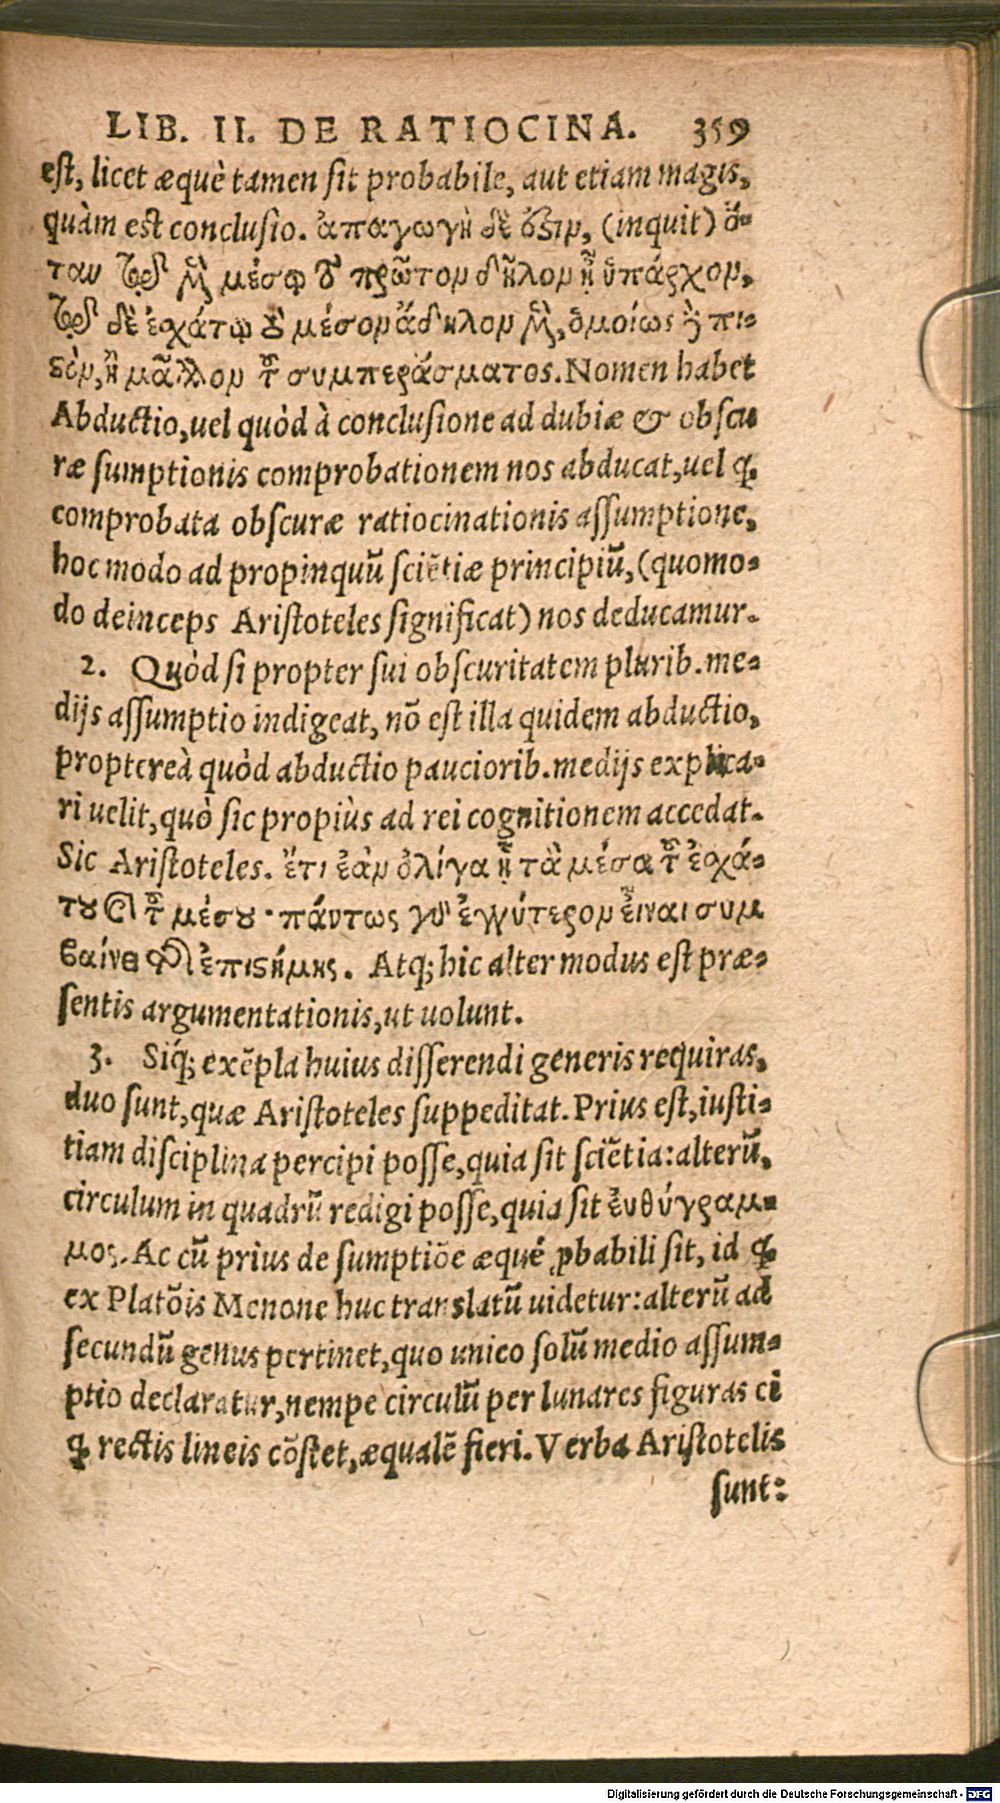 LIB. II. DE RATIOCINA. 359
est, licet æquè tamen sit probabile, aut etiam magis,
quàm est conclusio. ἀπαγωγὴ δὲ ὅξιν, (inquit) ὅ-
ταν τῷ μὲν μέσῳ τὸ πρῶτον δῆλον ᾖ ὑπάρχον,
τῷ δὲ ἐσχάτῳ τὸ μέσον ἄδηλον μὲν, ὁμοίως ἢ πι-
ςὸν, ἢ μᾶλλον τοῦ συμπεράσματος. Nomen habet
Abductio, uel quòd à conclusione ad dubiæ & obscu
ræ sumptionis comprobationem nos abducat, uel ꝙ
comprobata obscuræ ratiocinationis assumptione,
hoc modo ad propinquũ sciẽtiæ principiũ, (quomo-
do deinceps Aristoteles significat) nos deducamur.
2. Quòd si propter sui obscuritatem plurib. me-
dijs assumptio indigeat, nõ est illa quidem abductio,
proptereà quòd abductio pauciorib. medijs explica-
ri uelit, quò sic propiùs ad rei cognitionem accedat.
Sic Aristoteles. ἔτι ἐὰν ὀλίγα ᾖ τὰ μέσα τοῦ ἐσχά-
του καὶ τοῦ μέσου· πάντως γὰρ ἐγγύτερον εἶναι συμ
βαίνει τῆς ἐπιςήμης. Atq; hic alter modus est præ-
sentis argumentationis, ut uolunt.
3. Siq́; exẽpla huius disserendi generis requiras,
duo sunt, quæ Aristoteles suppeditat. Prius est, iusti-
tiam disciplina percipi posse, quia sit sciẽtia: alterũ,
circulum in quadrũ redigi posse, quia sit ἐυθύγραμ-
μος. Ac cũ prius de sumptiõe æquè ꝓbabili sit, id ꝙ
ex Platõis Menone huc translatũ uidetur: alterũ ad
secundũ genus pertinet, quo unico solũ medio assum-
ptio declaratur, nempe circulũ per lunares figuras ei
ꝙ rectis lineis cõstet, æqualẽ fieri. Verba Aristotelis
sunt:
Digitalisierung gefördert durch die Deutsche Forschungsgemeinschaft - DFG